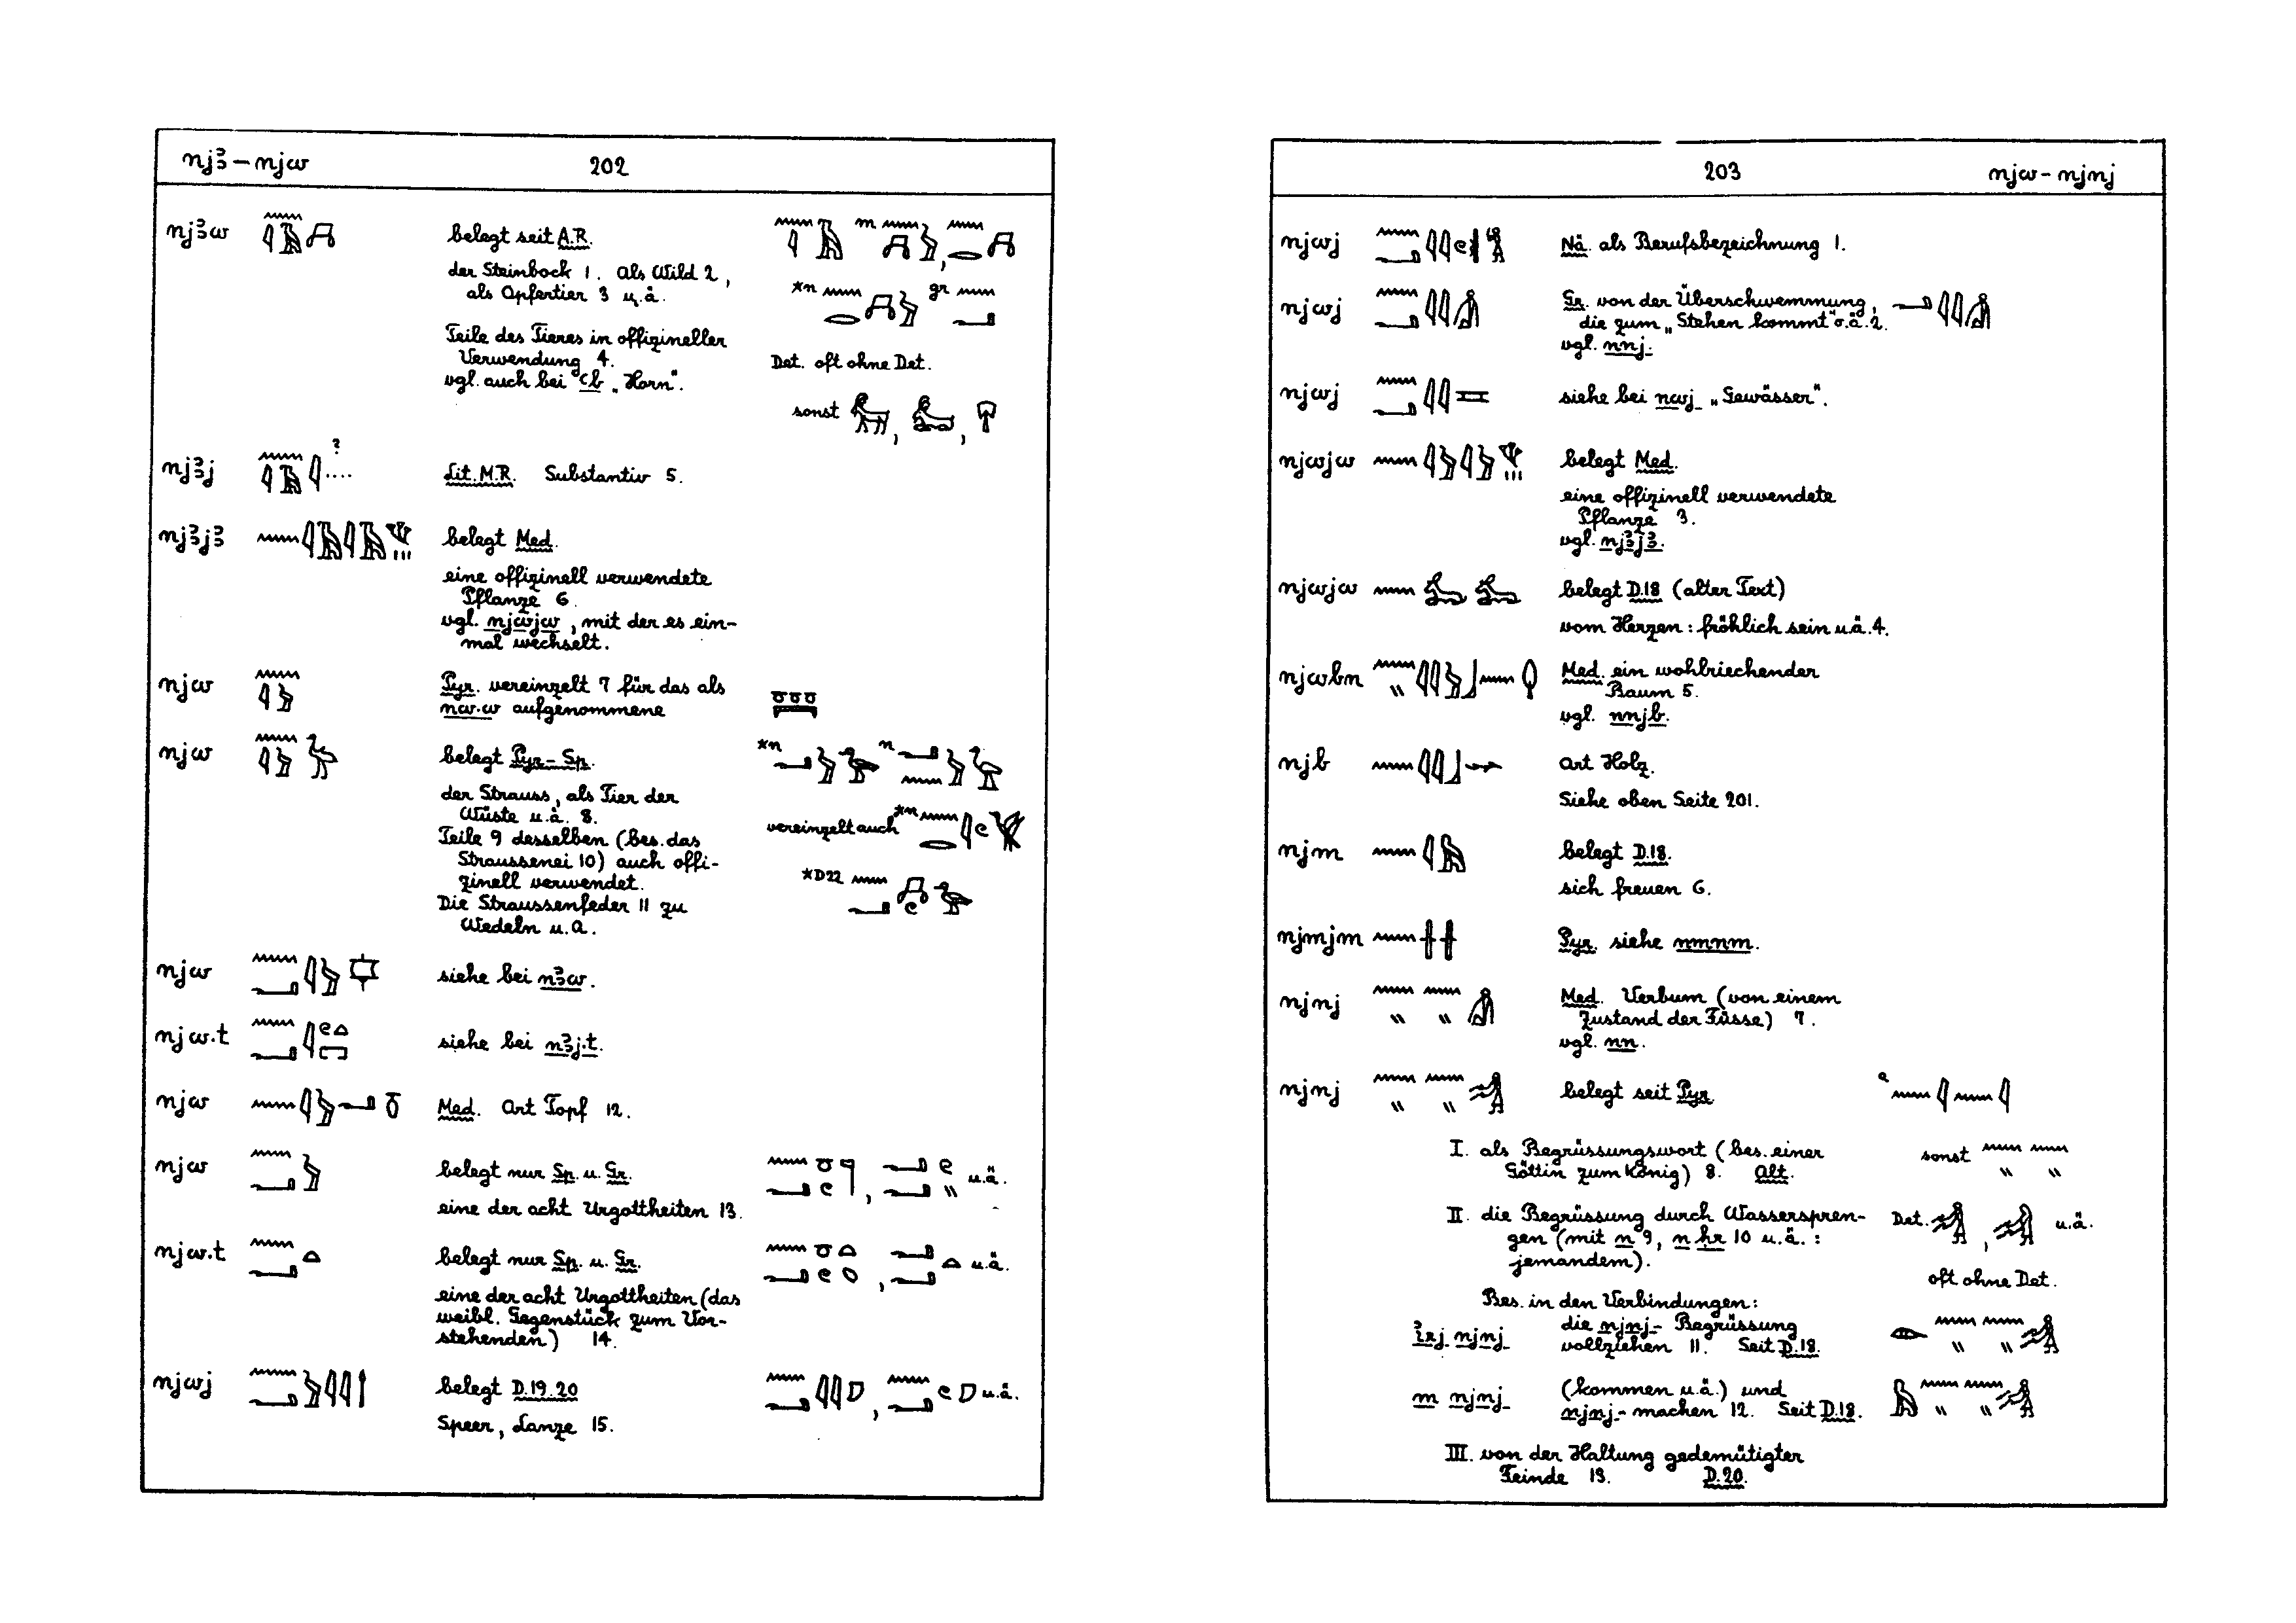 njꜣ – njw 202
njꜣw belegt seit A.R.
der Steinbock 1. Als Wild 2,
als Opfertier 3 u.ä.
Teile des Tieres in offizineller
Verwendung 4.
vgl. auch bei ꜥb „Horn“.
m
*n gr
Det. oft ohne Det.
sonst , ,
njꜣj ? .... Lit. M.R. Substantiv 5.
njꜣjꜣ belegt Med.
eine offizinell verwendete
Pflanze 6.
vgl. njwjw, mit der es ein-
mal wechselt.
njw Pyr. vereinzelt 7 für das als
nw.w aufgenommene
njw belegt Pyr – Sp.
der Strauss, als Tier der
Wüste u.ä. 8.
Teile 9 desselben (bes. das
Straussenei 10) auch offi-
zinell verwendet.
Die Straussenfeder 11 zu
Wedeln u.a.
*n n
vereinzelt auch *n
*D22
njw siehe bei nꜣw.
njw.t siehe bei nꜣj.t.
njw Med. Art Topf 12.
njw belegt nur Sp. u. Gr. , u.ä.
eine der acht Urgottheiten 13.
njw.t belegt nur Sp. u. Gr. , u.ä.
eine der acht Urgottheiten (das
weibl. Gegenstück zum Vor-
stehenden) 14.
njwj belegt D.19.20 , u.ä.
Speer, Lanze 15.
203 njw – njnj
njwj Nä. als Berufsbezeichnung 1.
njwj Gr. von der Überschwemmung,
die zum „Stehen kommt“ o.ä. 2.
vgl. nnj.
njwj siehe bei nwj „Gewässer“.
njwjw belegt Med.
eine offizinell verwendete
Pflanze 3.
vgl. njꜣjꜣ.
njwjw belegt D.18 (alter Text)
vom Herzen: fröhlich sein u.ä. 4.
njwbn Med. ein wohlriechender
Baum 5.
vgl. nnjb.
njb Art Holz.
Siehe oben Seite 201.
njm belegt D.18.
sich freuen 6.
njmjm Pyr. siehe nmnm.
njnj Med. Verbum (von einem
Zustand der Füsse) 7.
vgl. nn.
njnj belegt seit Pyr. a
I. als Begrüssungswort (bes. einer
Göttin zum König) 8. Alt.
sonst
II. die Begrüssung durch Wasserspren-
gen (mit n 9, n ḥr 10 u.ä.:
jemandem).
Det. , u.ä.
oft ohne Det.
Bes. in den Verbindungen:
irj njnj die njnj-Begrüssung
vollziehen 11. Seit D.18.
m njnj (kommen u.ä.) und
njnj-machen 12. Seit D.18.
III. von der Haltung gedemütigter
Feinde 13. D.20.